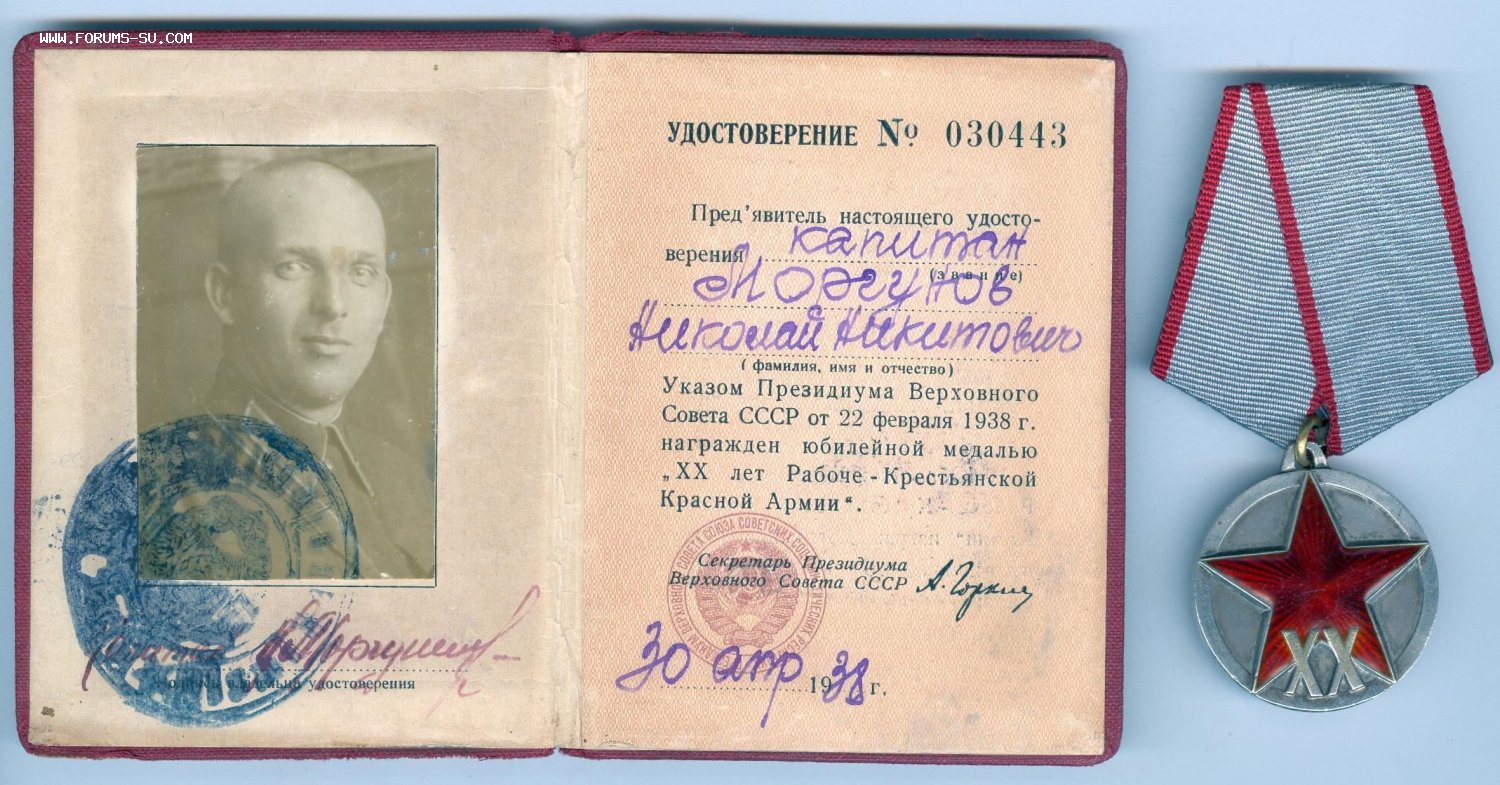 WWW.FORUMS-SU.COM
УДОСТОВЕРЕНИЕ № 030443
Пред'явитель настоящего удосто-
верения капитан
(звание)
Моргунов
Николай Никитович
(фамилия, имя и отчество)
Указом Президиума Верховного
Совета СССР от 22 февраля 1938 г.
награжден юбилейной медалью
„XX лет Рабоче-Крестьянской
Красной Армии“.
Секретарь Президиума
Верховного Совета СССР А. Горкин
30 апр 1938 г.
Подпись владельца удостоверения
XX